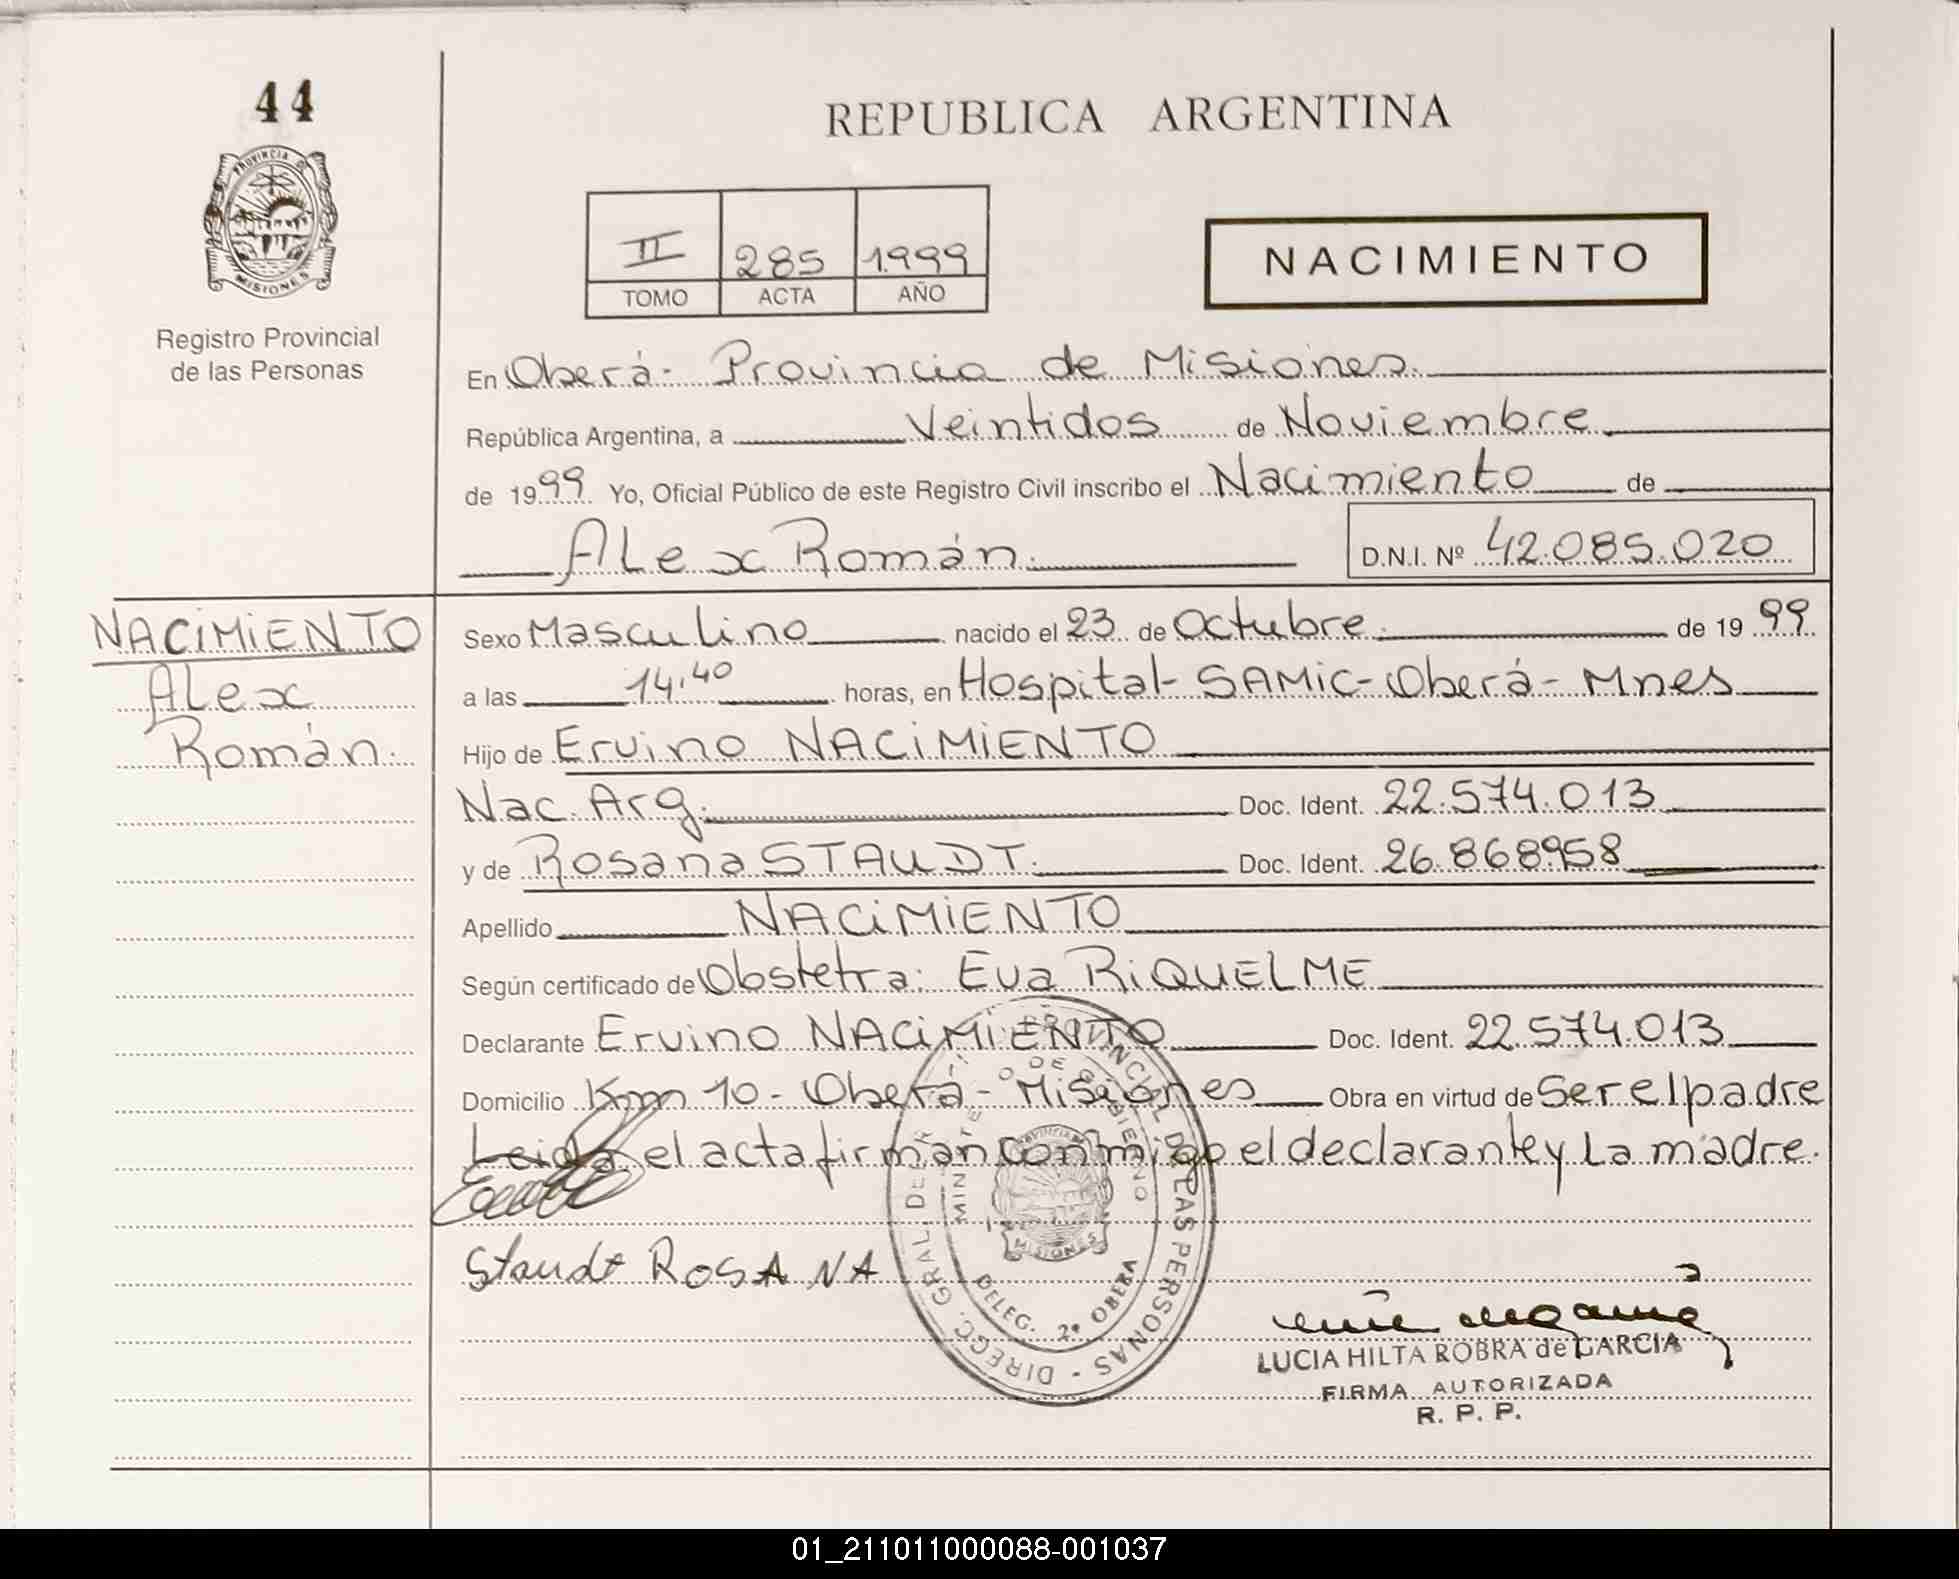 44
PROVINCIA D
MISIONES
Registro Provincial
de las Personas
REPUBLICA ARGENTINA
II 285 1999
TOMO ACTA AÑO
NACIMIENTO
En Oberá - Provincia de Misiones.
República Argentina, a Veintidos de Noviembre
de 1999 Yo, Oficial Público de este Registro Civil inscribo el Nacimiento de
Alex Román. D.N.I. Nº 42.085.020
NACIMIENTO
Alex
Román.
Sexo Masculino nacido el 23 de Octubre de 1999
a las 14,40 horas, en Hospital - SAMIC - Oberá - Mnes
Hijo de Ervino NACIMIENTO
Nac. Arg. Doc. Ident. 22.574.013
y de Rosana STAUDT. Doc. Ident. 26.868958
Apellido NACIMIENTO
Según certificado de Obstetra: Eva RIQUELME
Declarante Ervino NACIMIENTO Doc. Ident. 22.574.013
Domicilio Km 10 - Oberá - Misiones Obra en virtud de Ser el padre
Leida el acta firman conmigo el declarante y La madre.
Staudt ROSANA
DIRECC. GRAL. DEL R PROVINCIAL DE LAS PERSONAS -
MINISTE O DE GOBIERNO
MISIONES
DELEG. 2ª OBERA
LUCIA HILTA ROBRA de GARCIA
FIRMA AUTORIZADA
R. P. P.
01_211011000088-001037